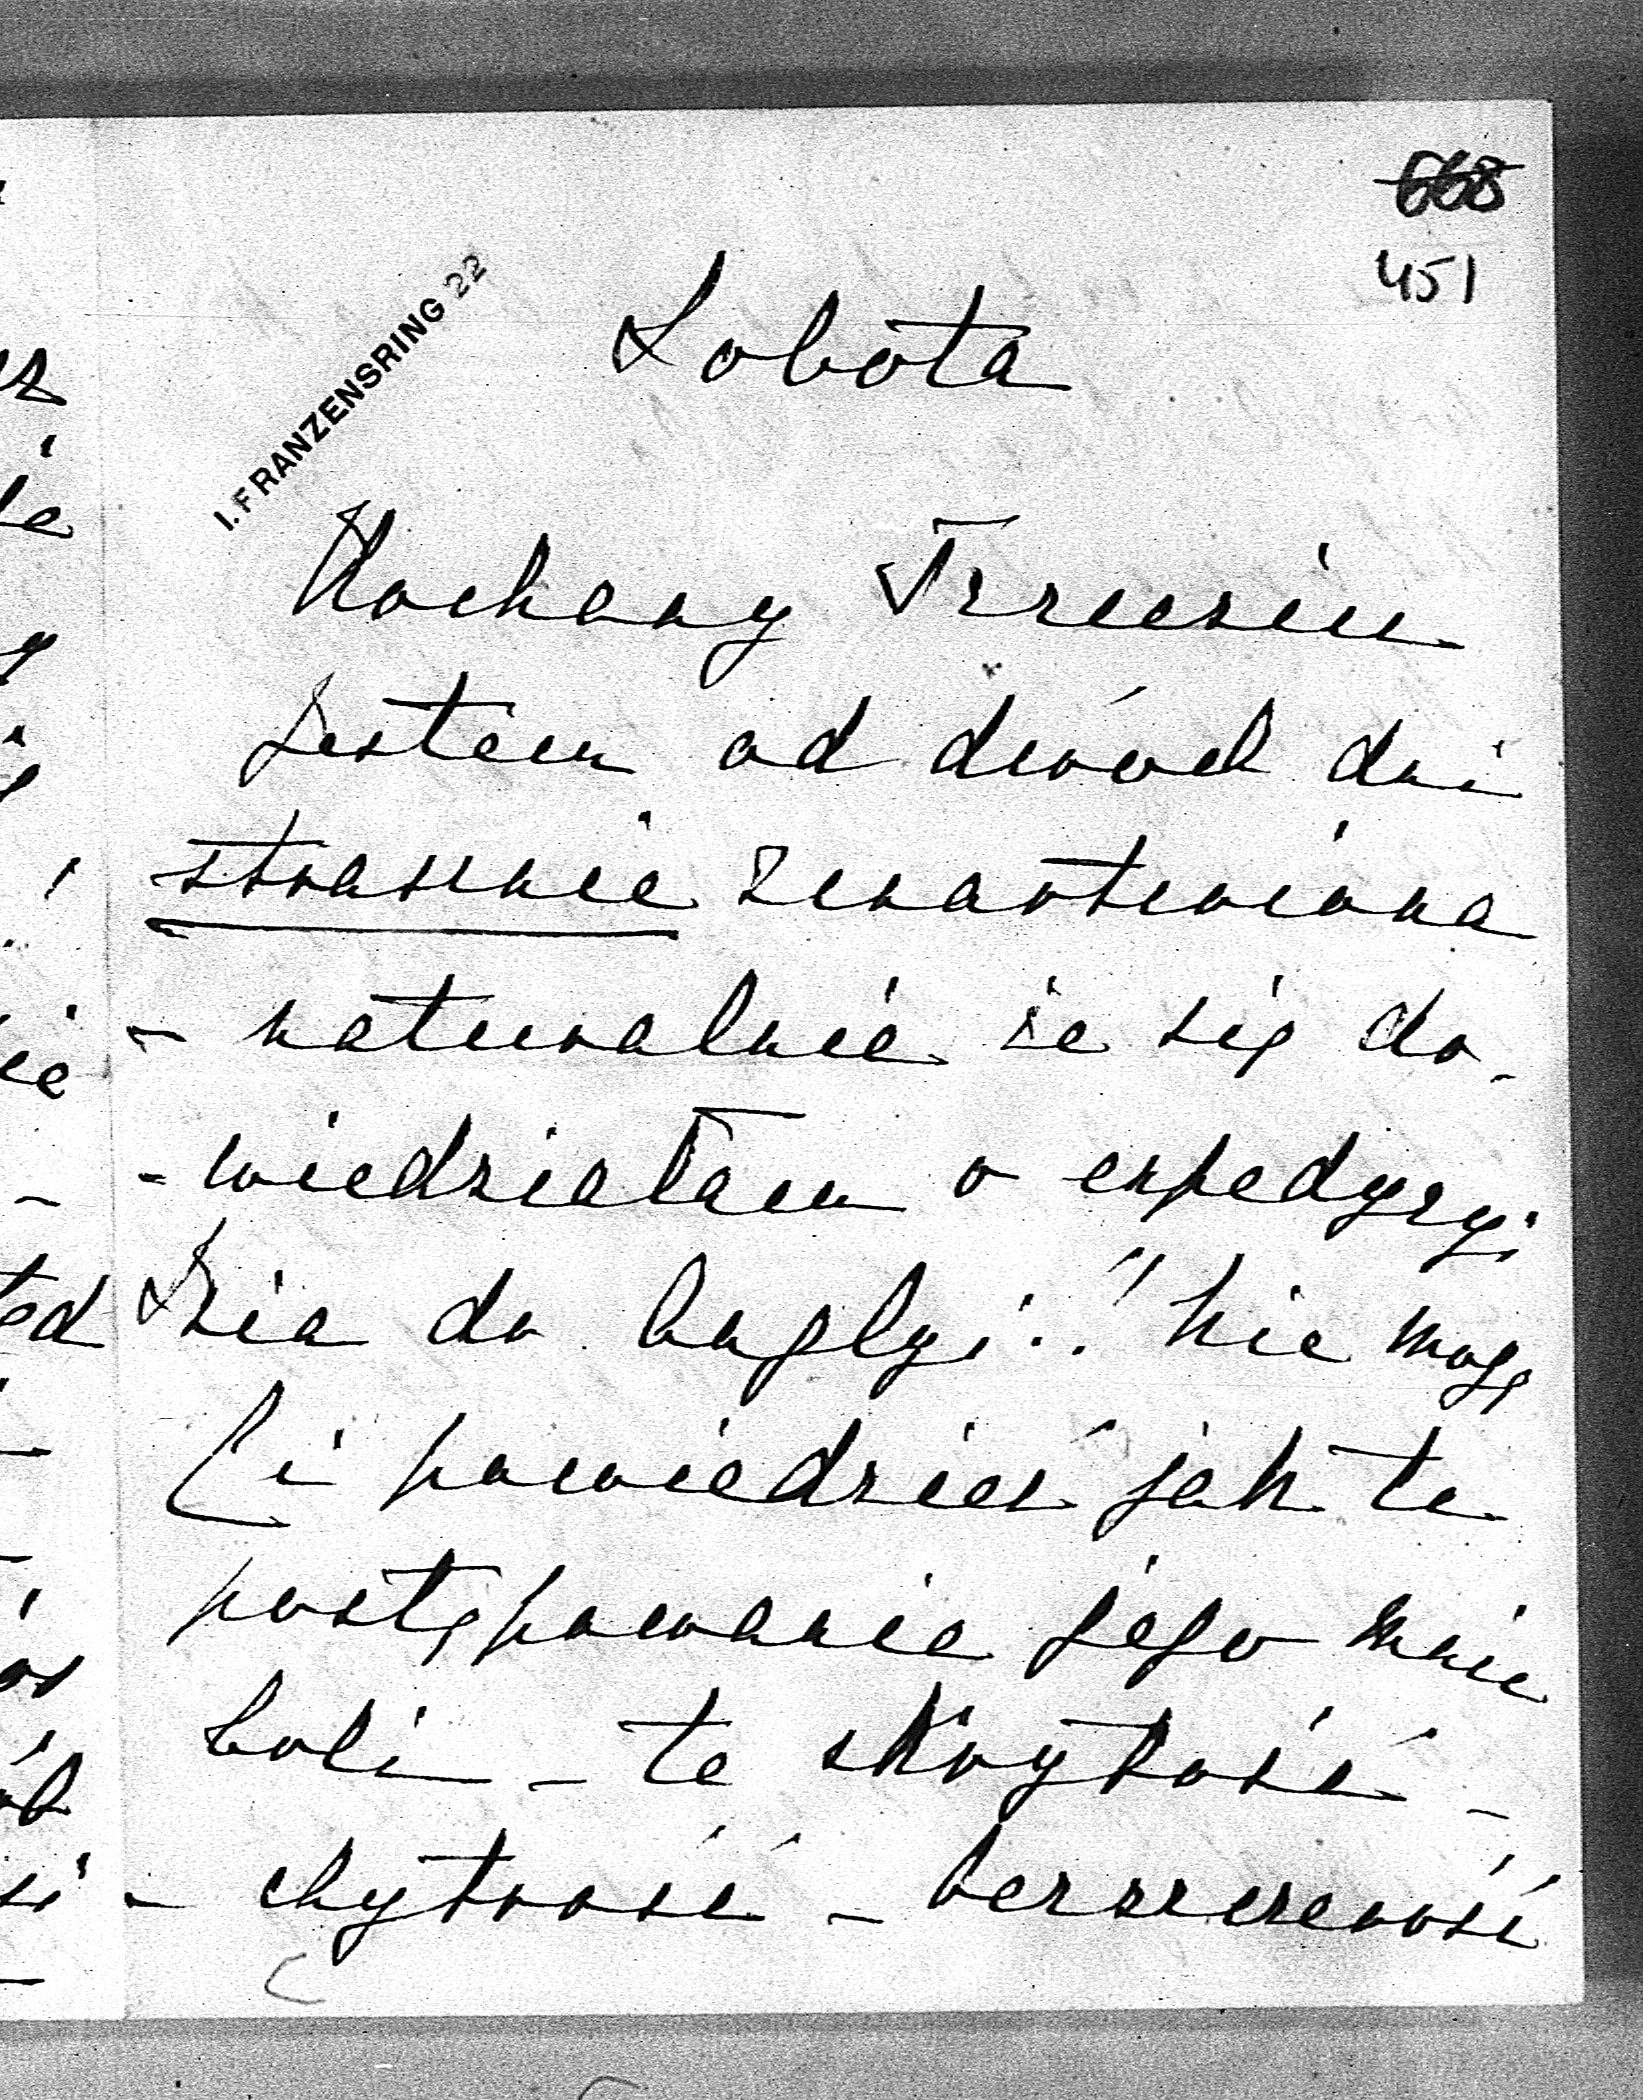 668
451
I. FRANZENSRING 22
Sobota
Kochany Trzeciu
Jestem od dwóch dni
strasznie zmartwiona
- naturalnie że się do-
-wiedziałam o expedycyi
do Anglyi.! Nie mogę
Ci powiedzieć jak te
postępowanie jego mnie
boli - te skrytość -
- chytrość - bezszczerość